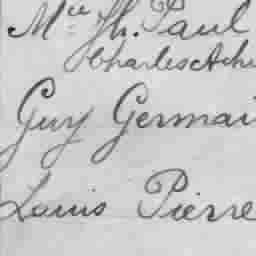 Mce Th. Paul
Charles Ache
Guy Germai
Louis Pierre